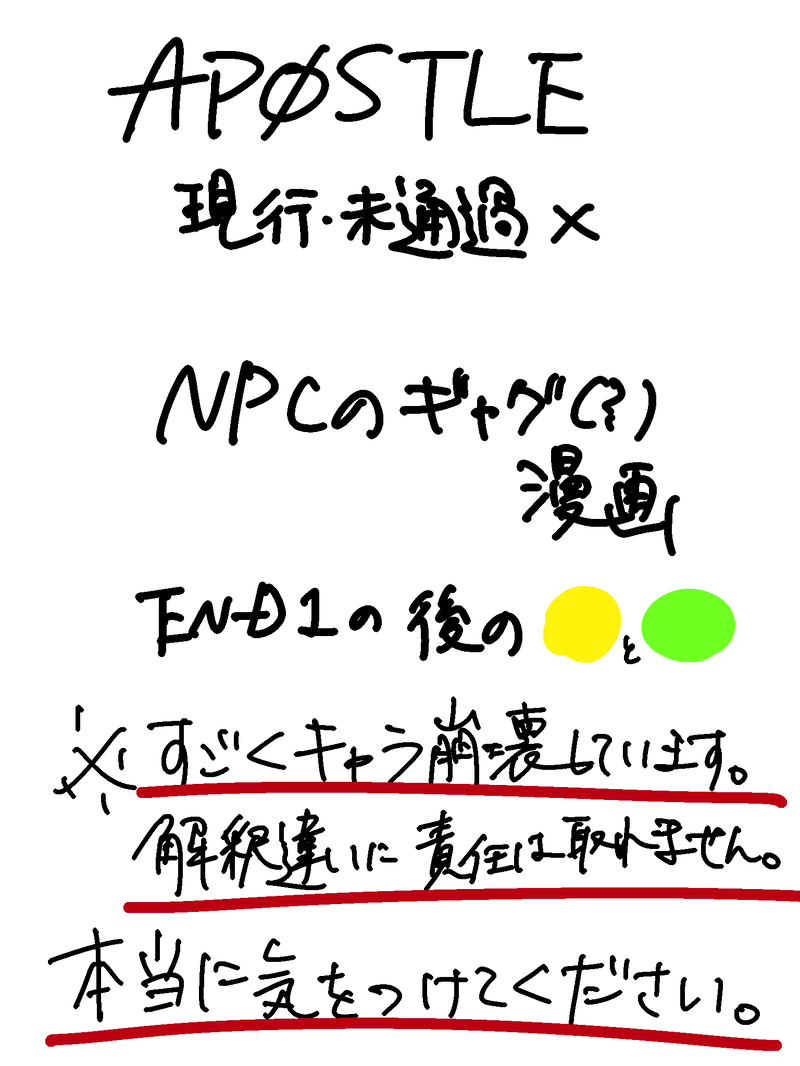 APØSTLE
現行・未通過×
NPCのギャグ(?)
漫画
END1の後の と
※すごくキャラ崩壊しています。
解釈違いに責任は取れません。
本当に気をつけてください。